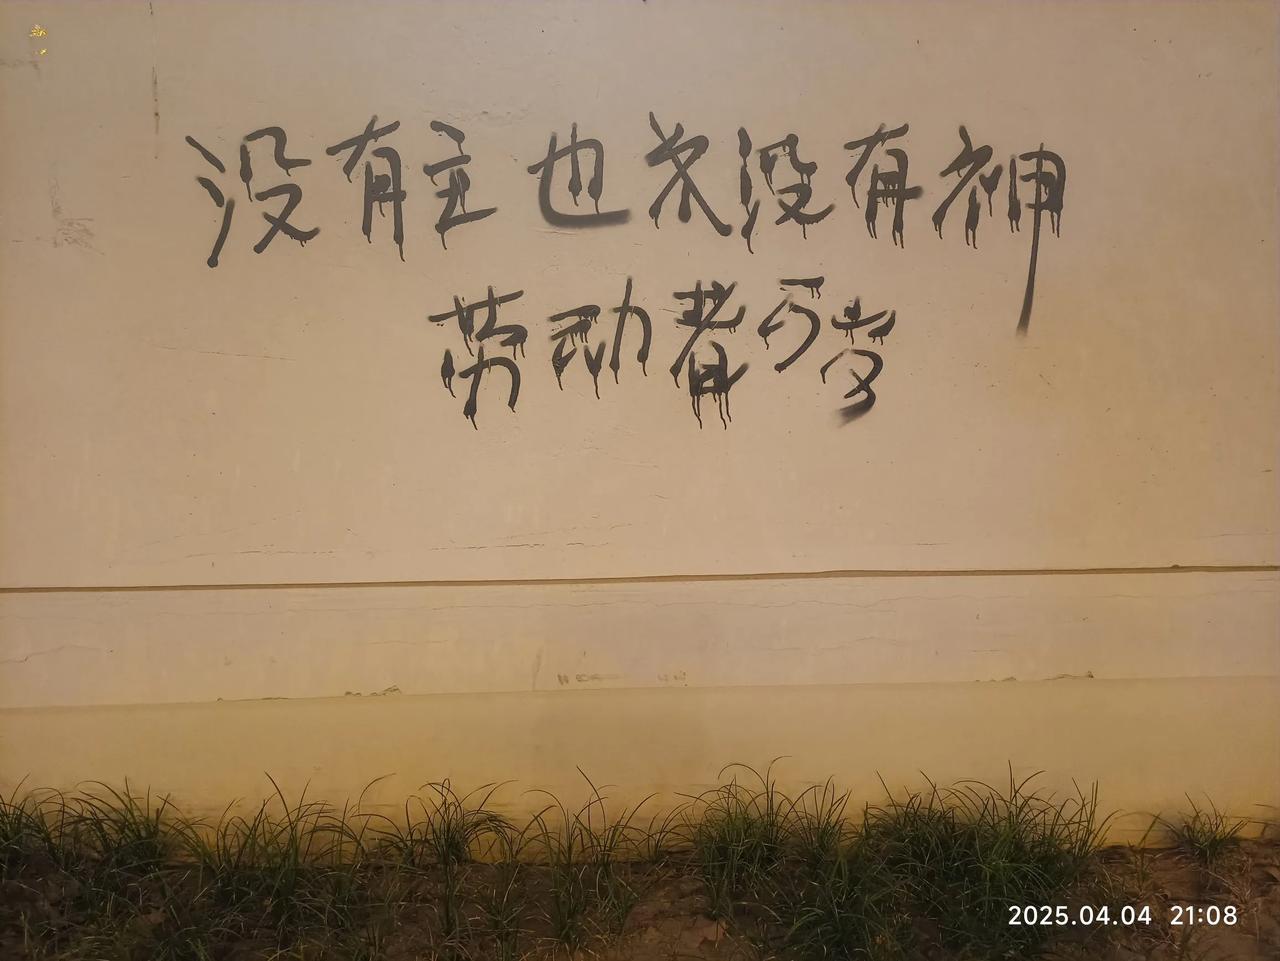 没有主也米没有神
劳动者万岁
2025.04.04 21:08